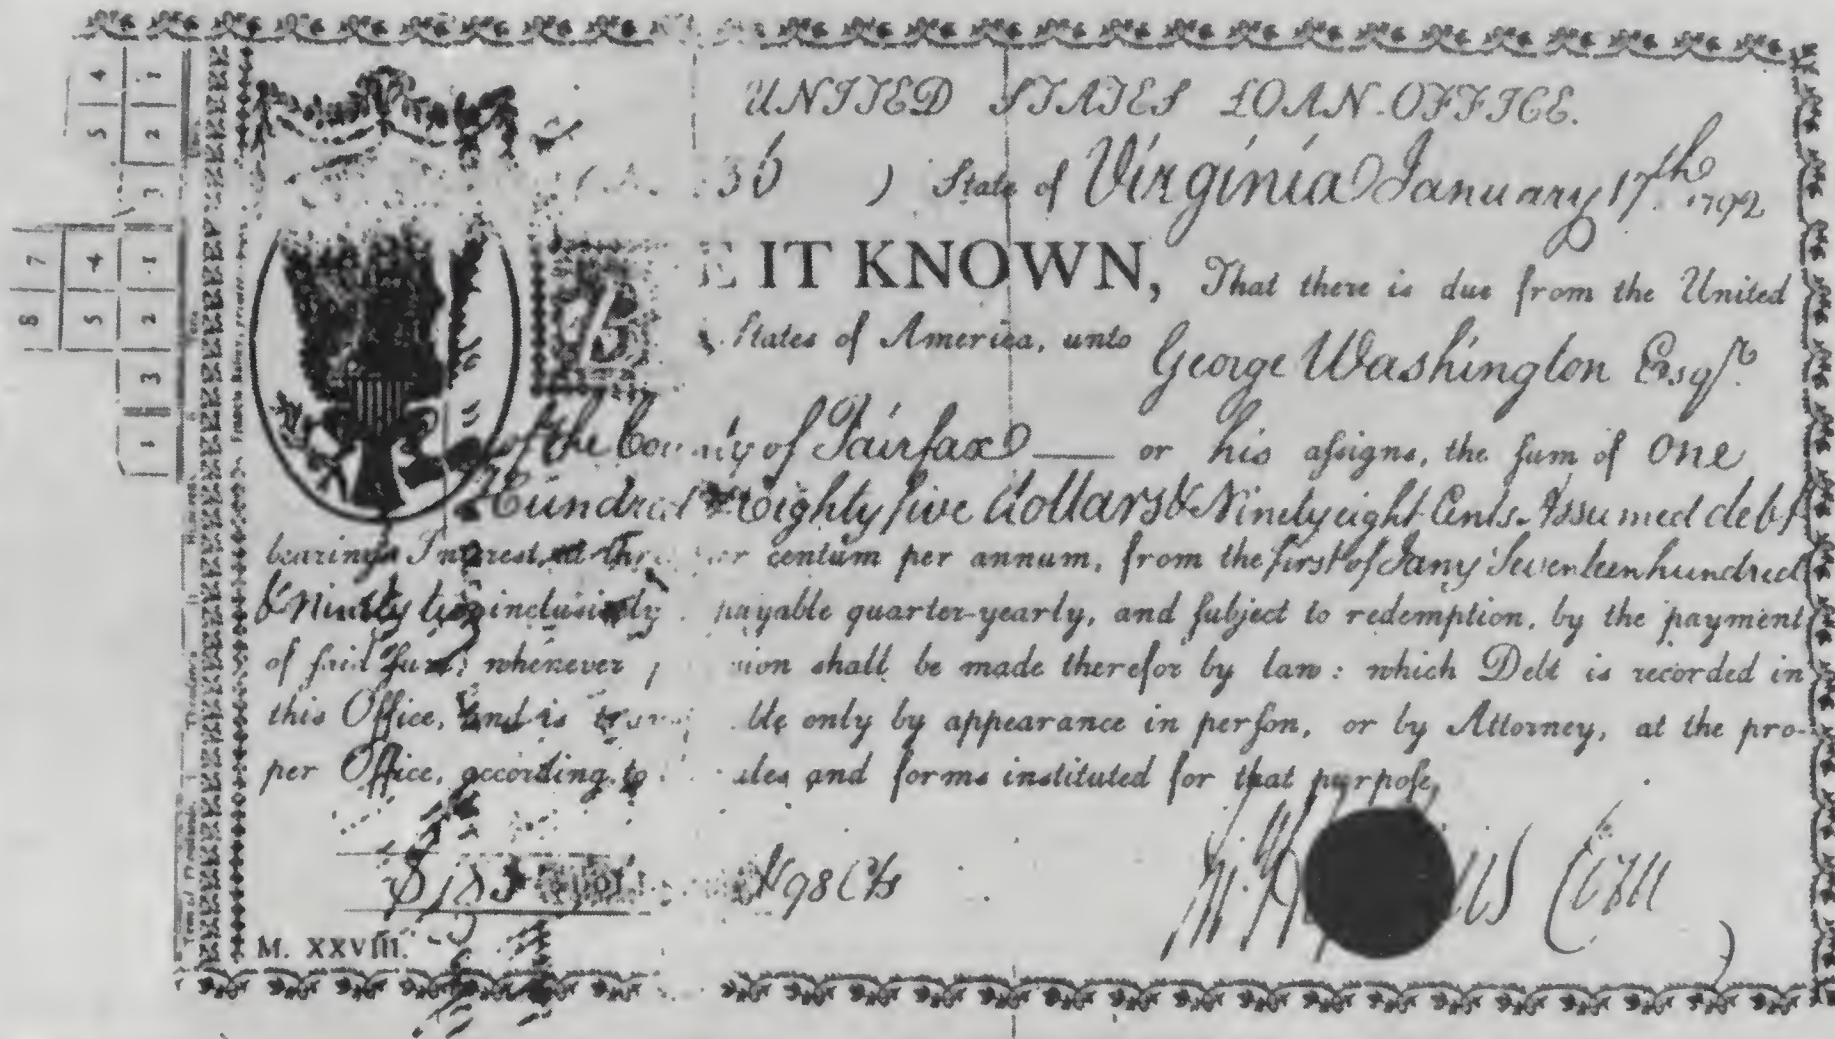 UNITED STATES LOAN-OFFICE.
36 ) State of Virginia January 17th 1792
BE IT KNOWN, That there is due from the United
States of America, unto George Washington Esqr.
of the County of Fairfax — or his aſsigns, the ſum of One
Hundred & Eighty five dollars & Ninety eight Cents. Assumed debt
bearing Interest, at three per centum per annum, from the first of Jany Seventeen hundred
& Ninety two inclusively payable quarter-yearly, and ſubject to redemption, by the payment
of ſaid ſum, whenever shall be made thereſor by law: which Debt is recorded in
this Office, and is only by appearance in perſon, or by Attorney, at the pro-
per Office, according to rules and forms instituted for that purpoſe,
$185 98 Cts
M. XXVIII.
4 1
5 2
3
7 4 1
8 5 2
3
1